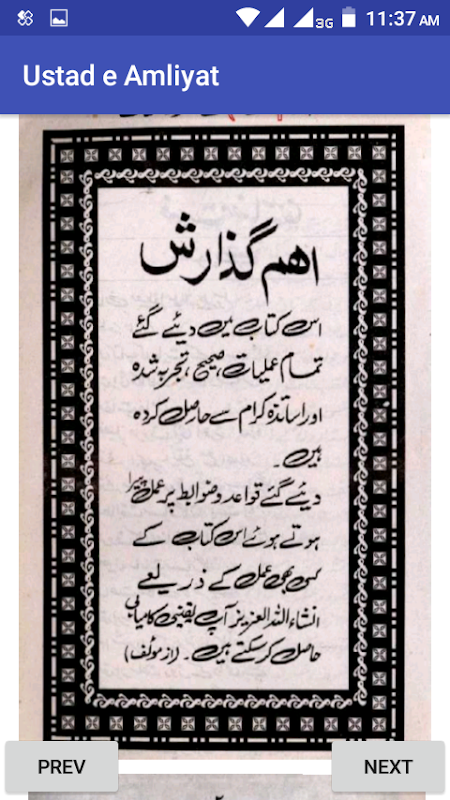 3G 11:37 AM
Ustad e Amliyat
اہم گذارش
اس کتاب میں دیئے گئے
تمام عملیات، صحیح، تجربہ شدہ
اور اساتذہ کرام سے حاصل کردہ
ہیں۔
دیئے گئے قواعد و ضوابط پر عمل پیرا
ہوتے ہوئے اس کتاب کے
کسی بھی عمل کے ذریعے
انشاء اللہ العزیز آپ یقینی کامیابی
حاصل کر سکتے ہیں۔ (از مؤلف)
PREV NEXT